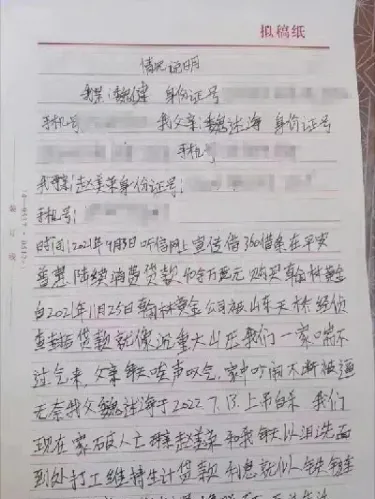 拟稿纸
情况证明
我是:魏健 身份证号
手机号 我父亲:魏 海 身份证号
手机号
我 :赵美荣身份证号:
手机号:
时间:2021年9月3日听信网上宣传借360借条在平安
普惠 陆续消费贷款 40余万 元 购买 翰林黄金
自2021年11月25日翰林黄金公司被山东 经侦
查封 贷款就像沉重大山压我们一家喘不
过气来,父亲每天唉声叹气,家中吵闹不断被逼
无奈我父魏 海于2022.7.13.上吊自杀 我们
现在家破人亡 赵美荣和我每天以泪洗面
到处打工维持生计贷款利息就似一条铁链